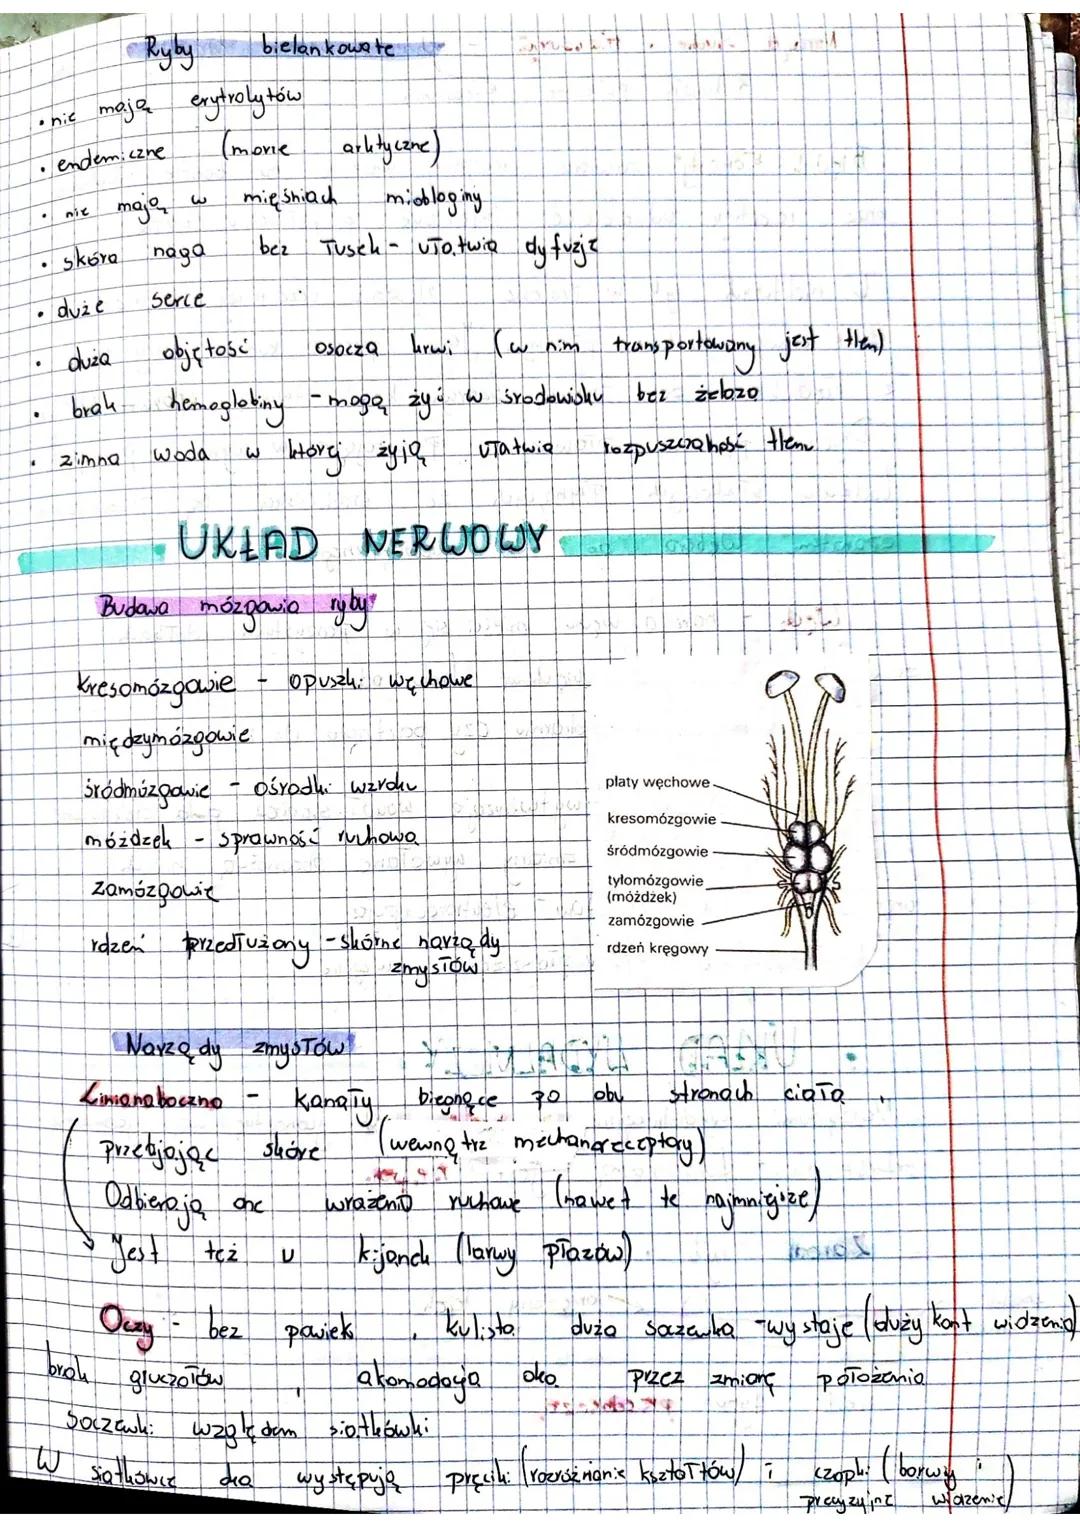 Ryby bielankowate
• nie mają erytrolytów
• endemiczne (morze arktyczne)
• nie mają w mięśniach miobloginy
• skóra naga bez łusek - ułatwia dyfuzję
• duże serce
• duża objętość osocza krwi (w nim transportowany jest tlen)
• brak hemoglobiny - mogą żyć w środowisku bez żelaza
• zimna woda w której żyją ułatwia rozpuszczalność tlenu
UKŁAD NERWOWY
Budowa mózgowia ryby
kresomózgowie - opuszki węchowe
międzymózgowie
śródmózgowie - ośrodki wzroku
móżdżek - sprawność ruchowa
zamózgowie
rdzeń przedłużony - skórne narządy
zmysłów
płaty węchowe
kresomózgowie
śródmózgowie
tyłomózgowie
(móżdżek)
zamózgowie
rdzeń kręgowy
Narządy zmysłów
Linia naboczna - kanały biegnące po obu stronach ciała
przebijając skórę (wewnątrz mechanoreceptory)
Odbierają one wrażenia ruchowe (nawet te najmniejsze)
Jest też u kijanek (larwy płazów)
Oczy - bez powiek, kulista duża soczewka - wystaje (duży kont widzenia)
brak gruczołów, akomodacja oka przez zmianę położenia
soczewki względem siatkówki
W siatkówce oka występują pręciki (rozróżnianie kształtów) i czopki (barwy i
precyzyjne widzenie)